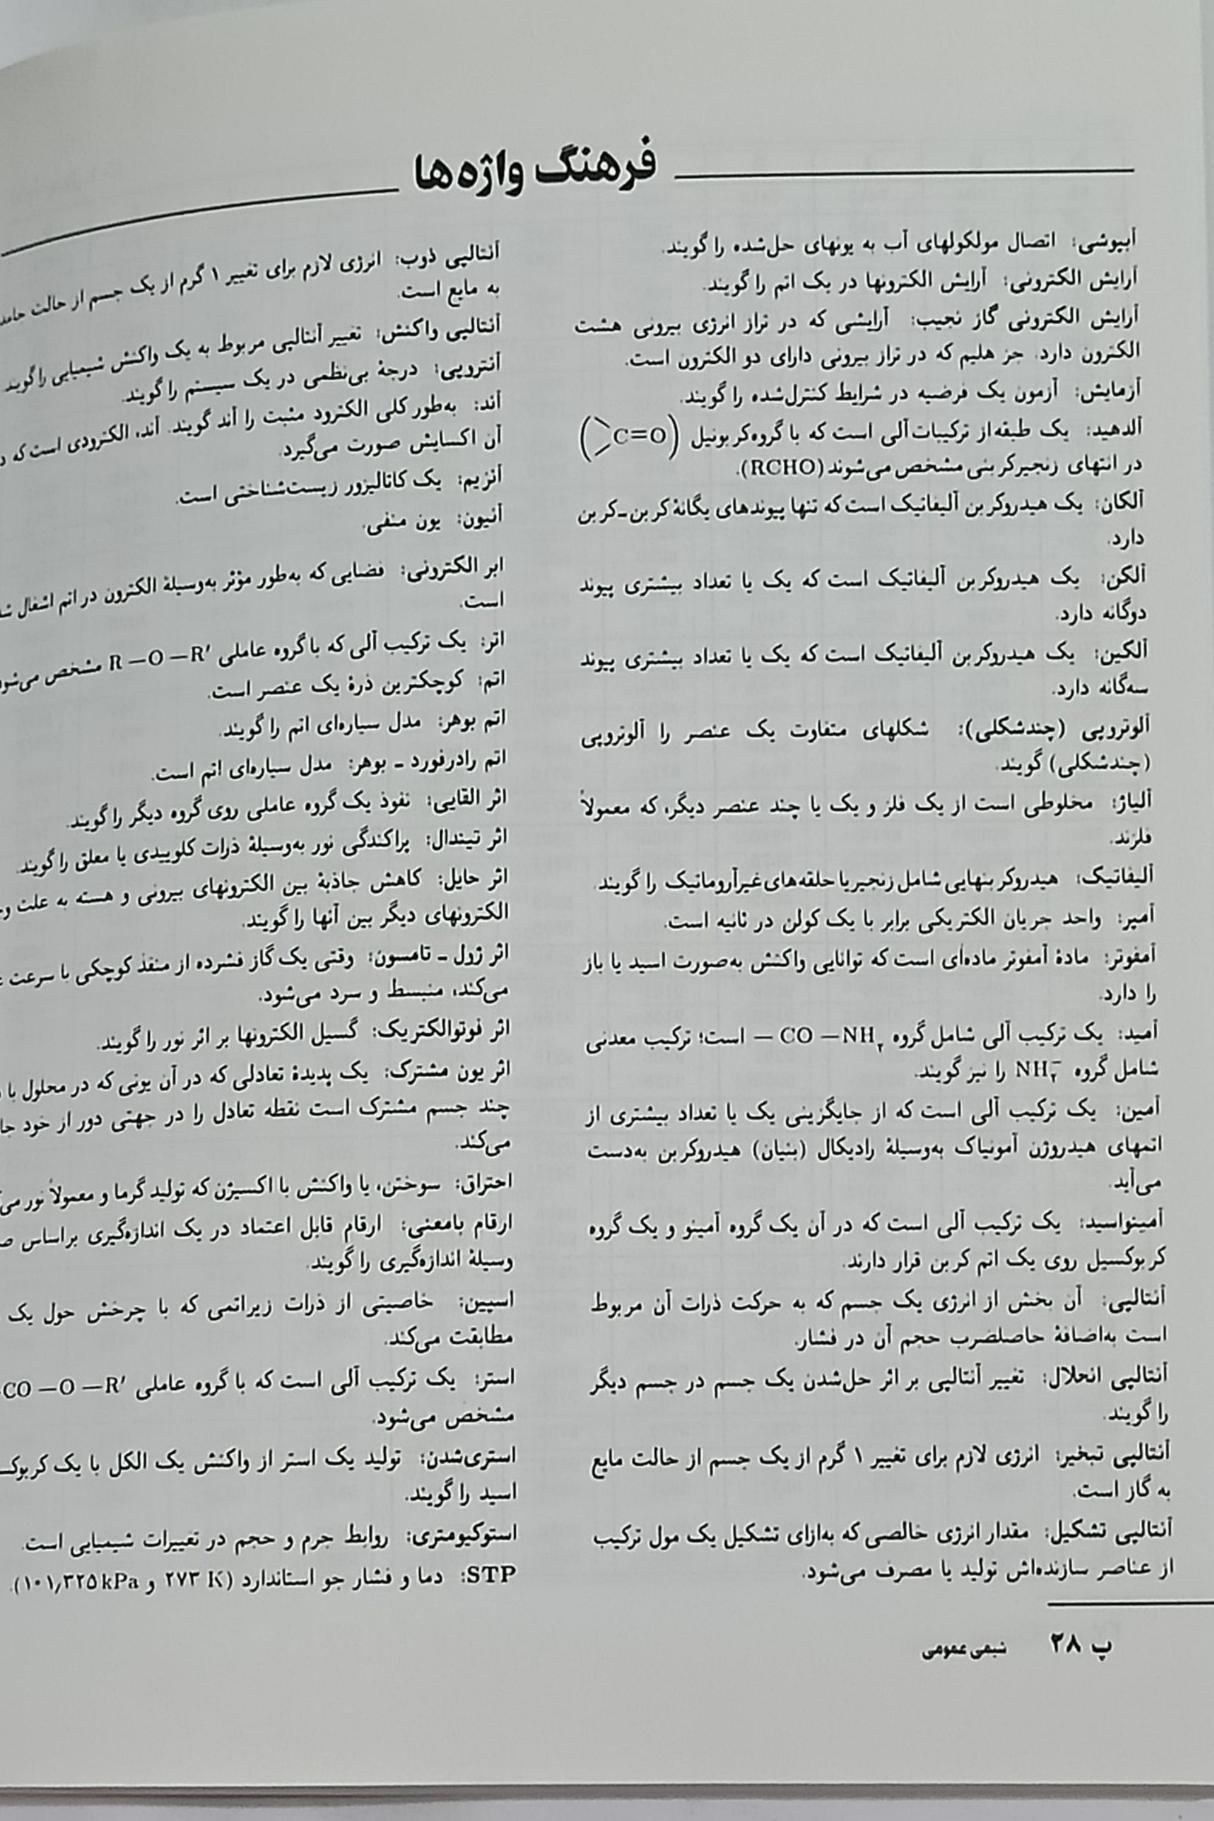 فرهنگ واژه‌ها
آبپوشی: اتصال مولکولهای آب به یونهای حل‌شده را گویند.
آرایش الکترونی: آرایش الکترونها در یک اتم را گویند.
آرایش الکترونی گاز نجیب: آرایشی که در تراز انرژی بیرونی هشت
الکترون دارد. جز هلیم که در تراز بیرونی دارای دو الکترون است.
آزمایش: آزمون یک فرضیه در شرایط کنترل‌شده را گویند.
آلدهید: یک طبقه از ترکیبات آلی است که با گروه کربونیل (C=O)
در انتهای زنجیر کربنی مشخص می‌شوند (RCHO).
آلکان: یک هیدروکربن آلیفاتیک است که تنها پیوندهای یگانهٔ کربن‌ـ‌کربن
دارد.
آلکن: یک هیدروکربن آلیفاتیک است که یک یا تعداد بیشتری پیوند
دوگانه دارد.
آلکین: یک هیدروکربن آلیفاتیک است که یک یا تعداد بیشتری پیوند
سه‌گانه دارد.
آلوتروپی (چندشکلی): شکلهای متفاوت یک عنصر را آلوتروپی
(چندشکلی) گویند.
آلیاژ: مخلوطی است از یک فلز و یک یا چند عنصر دیگر، که معمولاً
فلزند.
آلیفاتیک: هیدروکربنهایی شامل زنجیر یا حلقه‌های غیرآروماتیک را گویند.
آمپر: واحد جریان الکتریکی برابر با یک کولن در ثانیه است.
آمفوتر: مادهٔ آمفوتر ماده‌ای است که توانایی واکنش به‌صورت اسید یا باز
را دارد.
آمید: یک ترکیب آلی شامل گروه CO — NH۲ — است؛ ترکیب معدنی
شامل گروه NH۲⁻ را نیز گویند.
آمین: یک ترکیب آلی است که از جایگزینی یک یا تعداد بیشتری از
اتمهای هیدروژن آمونیاک به‌وسیلهٔ رادیکال (بنیان) هیدروکربن به‌دست
می‌آید.
آمینواسید: یک ترکیب آلی است که در آن یک گروه آمینو و یک گروه
کربوکسیل روی یک اتم کربن قرار دارند.
آنتالپی: آن بخش از انرژی یک جسم که به حرکت ذرات آن مربوط
است به‌اضافهٔ حاصلضرب حجم آن در فشار.
آنتالپی انحلال: تغییر آنتالپی بر اثر حل‌شدن یک جسم در جسم دیگر
را گویند.
آنتالپی تبخیر: انرژی لازم برای تغییر ۱ گرم از یک جسم از حالت مایع
به گاز است.
آنتالپی تشکیل: مقدار انرژی خالصی که به‌ازای تشکیل یک مول ترکیب
از عناصر سازنده‌اش تولید یا مصرف می‌شود.
آنتالپی ذوب: انرژی لازم برای تغییر ۱ گرم از یک جسم از حالت جامد
به مایع است.
آنتالپی واکنش: تغییر آنتالپی مربوط به یک واکنش شیمیایی را گویند.
آنتروپی: درجهٔ بی‌نظمی در یک سیستم را گویند.
آند: به‌طور کلی الکترود مثبت را آند گویند. آند، الکترودی است که
آن اکسایش صورت می‌گیرد.
آنزیم: یک کاتالیزور زیست‌شناختی است.
آنیون: یون منفی.
ابر الکترونی: فضایی که به‌طور مؤثر به‌وسیلهٔ الکترون در اتم اشغال
است.
اتر: یک ترکیب آلی که با گروه عاملی R — O — R′ مشخص می‌شود
اتم: کوچکترین ذرهٔ یک عنصر است.
اتم بوهر: مدل سیاره‌ای اتم را گویند.
اتم رادرفورد ـ بوهر: مدل سیاره‌ای اتم است.
اثر القایی: نفوذ یک گروه عاملی روی گروه دیگر را گویند.
اثر تیندال: پراکندگی نور به‌وسیلهٔ ذرات کلوییدی یا معلق را گویند.
اثر حایل: کاهش جاذبهٔ بین الکترونهای بیرونی و هسته به علت
الکترونهای دیگر بین آنها را گویند.
اثر ژول ـ تامسون: وقتی یک گاز فشرده از منفذ کوچکی با سرعت
می‌کند، منبسط و سرد می‌شود.
اثر فوتوالکتریک: گسیل الکترونها بر اثر نور را گویند.
اثر یون مشترک: یک پدیدهٔ تعادلی که در آن یونی که در محلول با
چند جسم مشترک است نقطه تعادل را در جهتی دور از خود
می‌کند.
احتراق: سوختن، یا واکنش با اکسیژن که تولید گرما و معمولاً نور
ارقام بامعنی: ارقام قابل اعتماد در یک اندازه‌گیری براساس
وسیلهٔ اندازه‌گیری را گویند.
اسپین: خاصیتی از ذرات زیراتمی که با چرخش حول یک
مطابقت می‌کند.
استر: یک ترکیب آلی است که با گروه عاملی CO — O — R′
مشخص می‌شود.
استری‌شدن: تولید یک استر از واکنش یک الکل با یک
اسید را گویند.
استوکیومتری: روابط جرم و حجم در تغییرات شیمیایی است.
STP: دما و فشار جو استاندارد (۲۷۳ K و ۱۰۱٫۳۲۵ kPa).
پ ۲۸ شیمی عمومی